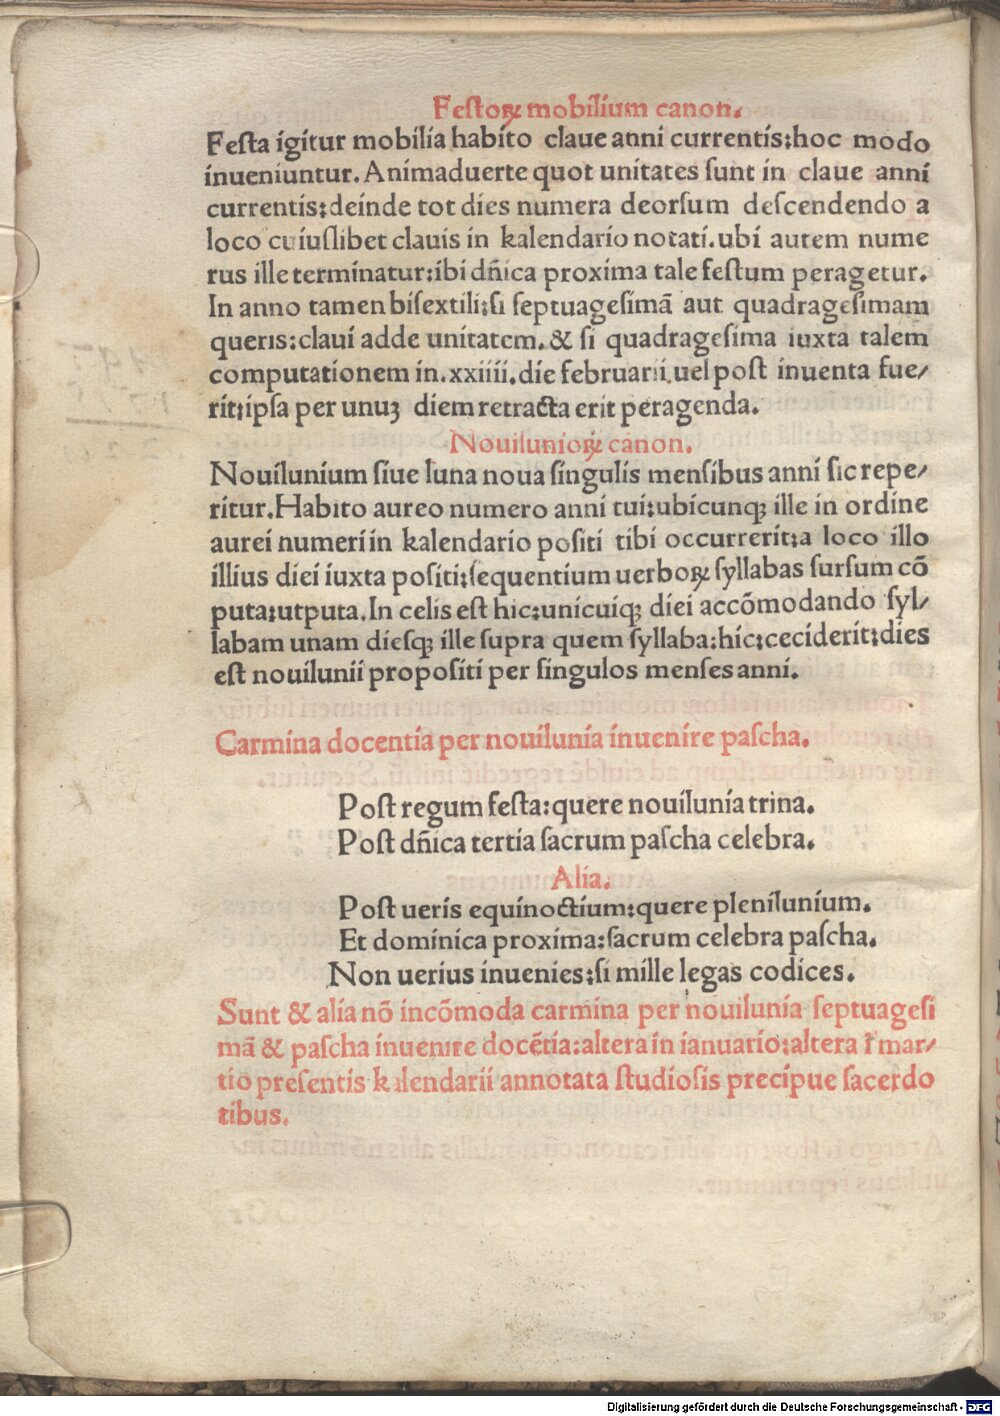 Festoꝝ mobilium canon.
Festa igitur mobilia habito claue anni currentis:hoc modo
inueniuntur. Animaduerte quot unitates ſunt in claue anni
currentis:deinde tot dies numera deorſum deſcendendo a
loco cuiuſlibet clauis in kalendario notati. ubi autem nume
rus ille terminatur:ibi dñica proxima tale feſtum peragetur.
In anno tamen biſextili:ſi ſeptuageſimā aut quadrageſimam
queris:claui adde unitatem. & ſi quadrageſima iuxta talem
computationem in .xxiiii. die februarii, uel poſt inuenta fue/
rit:ipſa per unuꝫ diem retracta erit peragenda.
Nouilunioꝝ canon.
Nouilunium ſiue luna noua ſingulis menſibus anni ſic repe/
ritur. Habito aureo numero anni tui:ubicunqꝫ ille in ordine
aurei numeri in kalendario poſiti tibi occurrerit:a loco illo
illius diei iuxta poſiti:ſequentium uerboꝝ ſyllabas ſurſum cō
puta:utputa. In celis eſt hic:unicuiqꝫ diei accōmodando ſyl/
labam unam dieſqꝫ ille ſupra quem ſyllaba:hic:ceciderit:dies
eſt nouilunii propoſiti per ſingulos menſes anni.
Carmina docentia per nouilunia inuenire paſcha.
Poſt regum feſta:quere nouilunia trina.
Poſt dñica tertia ſacrum paſcha celebra.
Alia.
Poſt ueris equinoctium:quere plenilunium.
Et dominica proxima:ſacrum celebra paſcha.
Non uerius inuenies:ſi mille legas codices.
Sunt & alia nō incōmoda carmina per nouilunia ſeptuageſi
mā & paſcha inuenire docētia:altera in ianuario:altera ī mar/
tio preſentis kalendarii annotata ſtudioſis precipue ſacerdo
tibus.
Digitalisierung gefördert durch die Deutsche Forschungsgemeinschaft - DFG